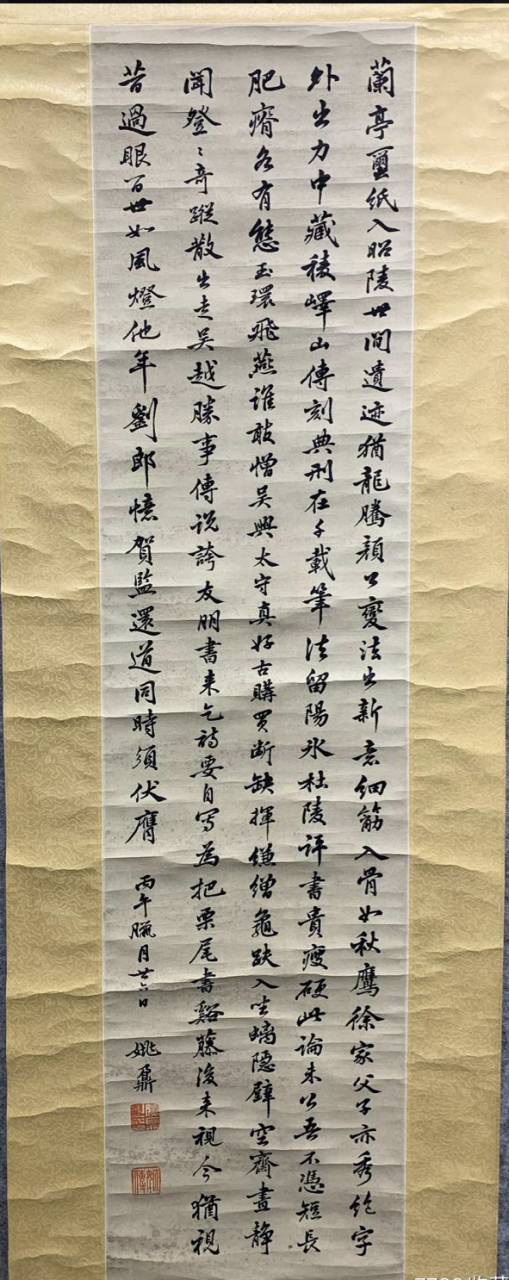 蘭亭璽紙入昭陵世間遺迹猶龍騰顏公變法出新意細筋入骨如秋鷹徐家父子亦秀絕字
外出力中藏稜嶧山傳刻典刑在千載筆法留陽冰杜陵評書貴瘦硬此論未公吾不憑短長
肥瘠各有態玉環飛燕誰敢憎吳興太守真好古購買斷缺揮縑繒龜趺入坐螭隱壁空齋晝静
聞登〻奇蹤散出走吳越勝事傳説誇友朋書来乞詩要自寫為把栗尾書谿藤後来視今猶視
昔過眼百世如風燈他年劉郎憶賀監還道同時須伏膺
丙午臘月廿六日
姚鼐